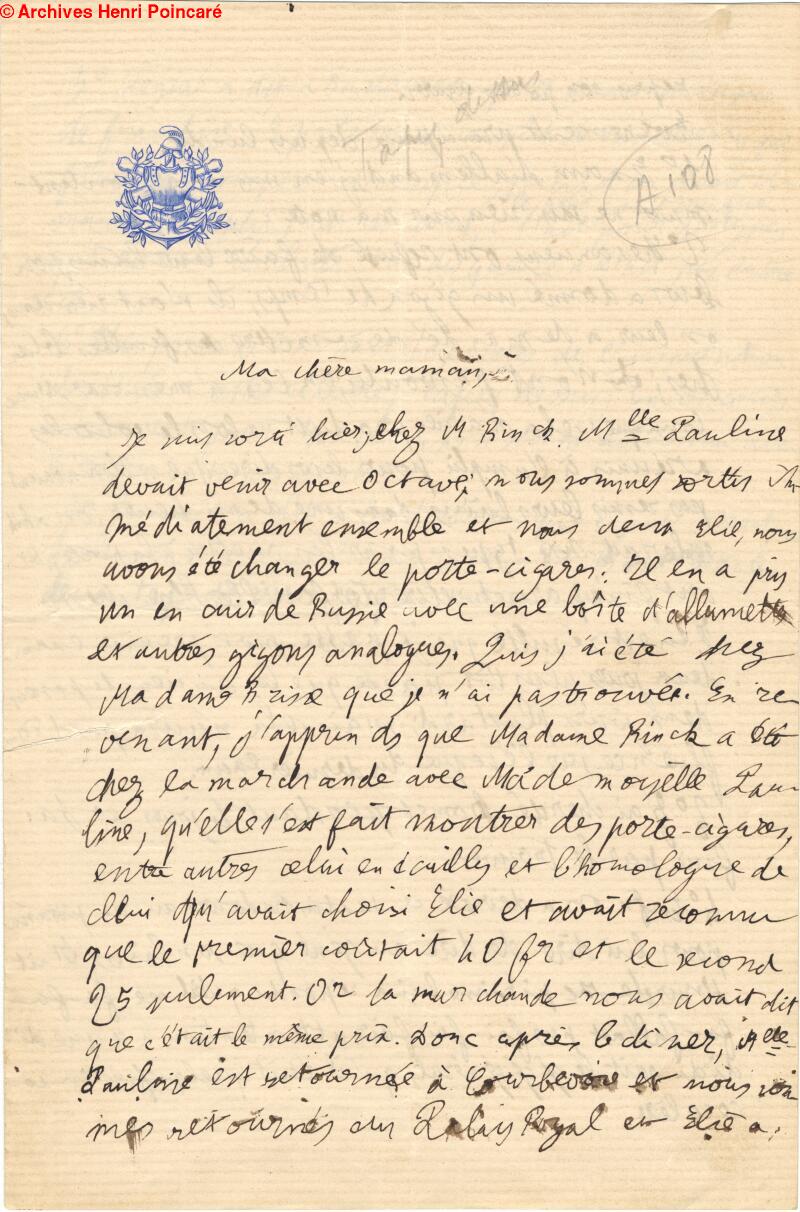 © Archives Henri Poincaré
A 108
Ma chère maman,
Je suis sorti hier chez M Rinck. Mlle Pauline
devait venir avec Octave; nous sommes sortis im-
médiatement ensemble et nous deux Elie, nous
avons été changer le porte-cigares. Il en a pris
un en cuir de Russie avec une boîte d'allumettes
et autres gigons analogues. Puis j'ai été chez
Madame Brise que je n'ai pas trouvée. En re
venant, j'apprends que Madame Rinck a été
chez la marchande avec Mademoiselle Pau-
line, qu'elle s'est fait montrer des porte-cigares,
entre autres celui en écailles et l'homologue de
celui qu'avait choisi Elie et avait reconnu
que le premier coûtait 40 fr et le second
25 seulement. Or la marchande nous avait dit
que c'était le même prix. Donc après le dîner, Mlle
Pauline est retournée à Courbevoie et nous som
mes retournés au Palais Royal et Elie a